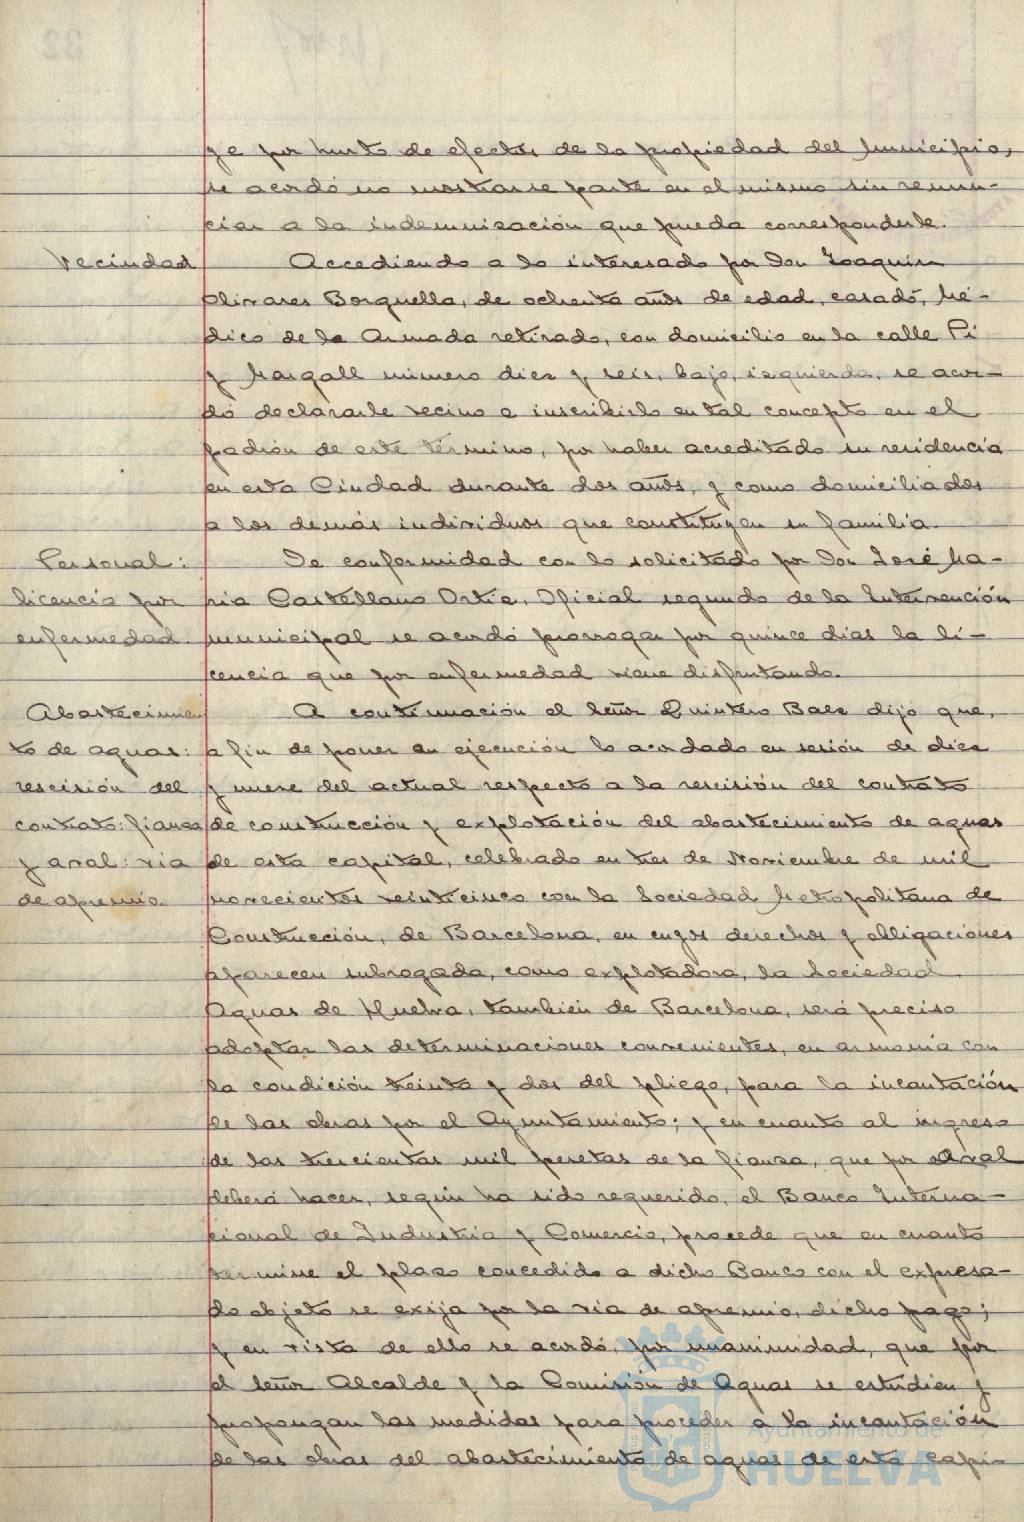 ge por hurto de efectos de la propiedad del Municipio,
se acordó no mostrarse parte en el mismo sin renun-
ciar a la indemnización que pueda corresponderle.
Vecindad
Accediendo a lo interesado por Don Joaquín
Olivares Borguella, de ochenta años de edad, casado, Mé-
dico de la Armada retirado, con domicilio en la calle Pi
y Margall número diez y seis, bajo, izquierda, se acor-
dó declararle vecino e inscribirlo en tal concepto en el
padrón de este término, por haber acreditado su residencia
en esta Ciudad durante dos años, y como domiciliados
a los demás individuos que constituyen su familia.
Personal:
licencia por
enfermedad.
De conformidad con lo solicitado por Don José Ma-
ria Castellano Ortiz, Oficial segundo de la Intervención
municipal se acordó prorrogar por quince dias la li-
cencia que por enfermedad viene disfrutando.
Abastecimien
to de aguas:
rescisión del
contrato: fianza
y aval: via
de apremio.
A continuación el Señor Quintero Baez dijo que,
a fin de poner en ejecución lo acordado en sesión de diez
y nueve del actual respecto a la rescisión del contrato
de construcción y explotación del abastecimiento de aguas
de esta capital, celebrado en tres de Noviembre de mil
novecientos veinticinco con la Sociedad Metropolitana de
Construcción, de Barcelona, en cuyos derechos y obligaciones
aparecen subrogada, como explotadora, la Sociedad
Aguas de Huelva, también de Barcelona, será preciso
adoptar las determinaciones convenientes, en armonia con
la condición treinta y dos del pliego, para la incautación
de las obras por el Ayuntamiento; y en cuanto al ingreso
de las trescientas mil pesetas de la fianza, que por Aval
deberá hacer, según ha sido requerido, el Banco Interna-
cional de Industria y Comercio, procede que en cuanto
termine el plazo concedido a dicho Banco con el expresa-
do objeto se exija por la via de apremio, dicho pago;
y en vista de ello se acordó, por unanimidad, que por
el Señor Alcalde y la Comisión de Aguas se estudien y
propongan las medidas para proceder a la incautación
de las obras del abastecimiento de aguas de esta capi-
Ayuntamiento de
HUELVA